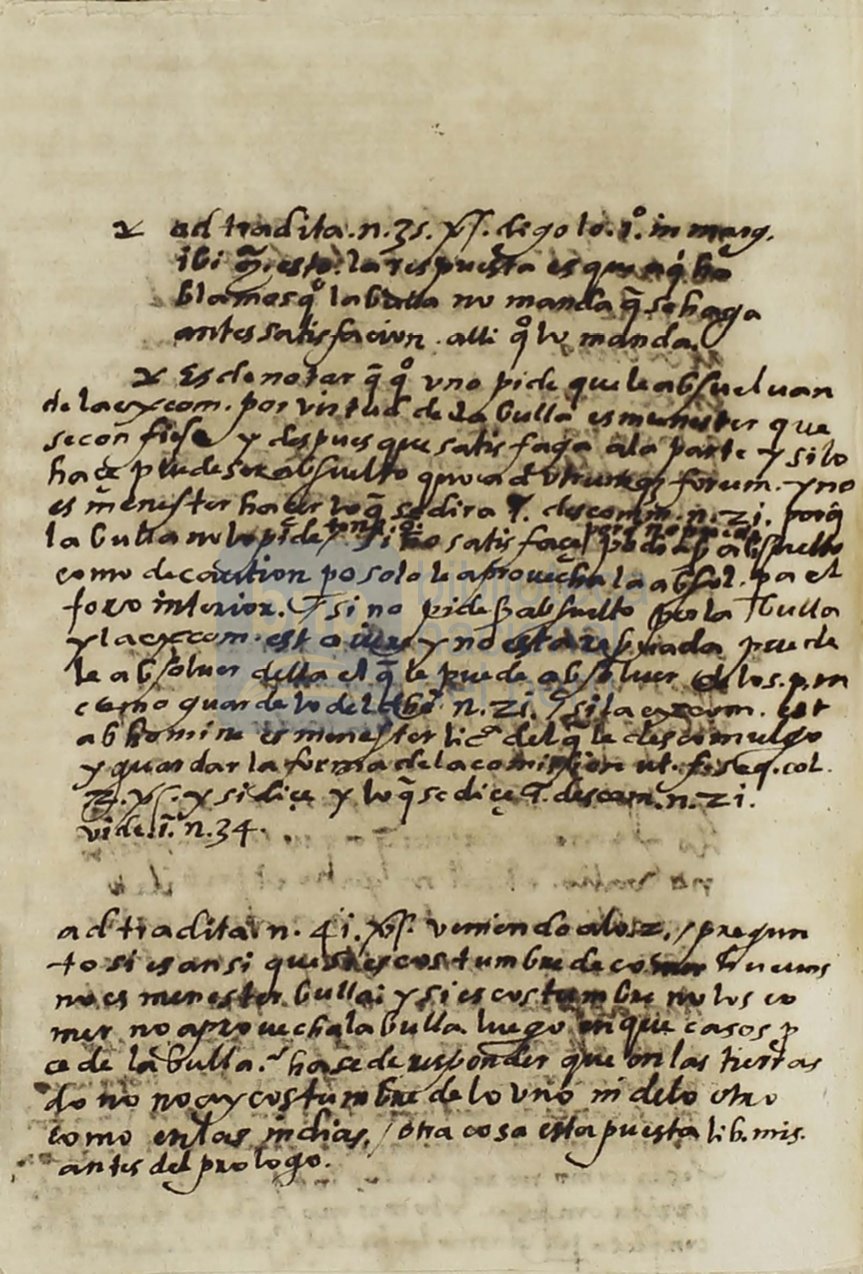 ad tradita. n. 35. digo lo. 1º. in marg.
ibi la respuesta es que aq̃ ha
blamos qº la bulla no manda q̃ se haga
antes satisfacion. alli qº lo manda.
Es de notar q̃ qº uno pide que le absuelvan
de la excom. por virtud de la bulla es menester que
se confiese y despues que satisfaga a la parte y si lo
haçe puede ser absuelto quo ad utrumq; forum. y no
es menester haçer lo q̃ se dira descomm. n. 21. porq̃
la bulla no lo pide si no satisfaçe absuelto
como de caution po solo le aprovecha la absol. pa el
foro interior. si no pide absuelto por la bulla
y la excom. est a iure y no esta reservada puede
le absolver della el q̃ le puede absolver de los p. m
como guarde lo del n. 21. si la excom. est
ab homine es menester licª del q̃ le descomulgo
y guardar la forma de la comission ut. col.
2. y si diçe y lo q̃ se diçe descom. n. 21.
vide. n. 34.
ad tradita n. 41. veniendo a los 2. / pregun
to si es ansi que si es costumbre de comer huevos
no es menester bulla: y si es costumbre no los co
mer no aprovecha la bulla luego en que casos
de la bulla. hase de responder que en las tierras
do no no ay costumbre de lo uno ni de lo otro
como en las indias. / otra cosa esta puesta lib. mis.
antes del prologo.